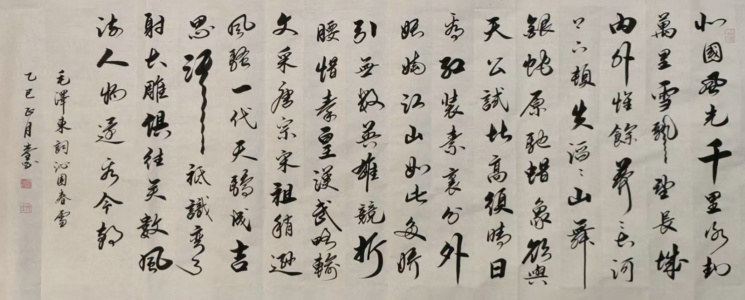 北國風光千里冰封
萬里雪飄望長城
内外惟餘莽〻大河
上下頓失滔〻山舞
銀蛇原馳蠟象欲與
天公試比高須晴日
看紅裝素裹分外
妖嬈江山如此多嬌
引無數英雄競折
腰惜秦皇漢武略輸
文采唐宗宋祖稍遜
風騷一代天驕成吉
思汗祗識彎弓
射大雕俱往矣數風
流人物還看今朝
毛澤東詞沁園春雪
乙巳正月